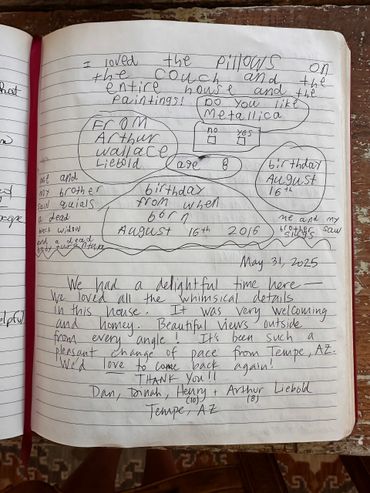 I loved the pillows on
the couch and the
entire house and the
Paintings!
Do you like
Metallica
no yes
From
Arthur
wallace
Liebold
age 8
birthday
August
16th
me and
my brother
saw quiels
a dead
black widow
and a dead
birthday
from when
born
August 16th 2016
me and my
brother saw
May 31, 2025
We had a delightful time here —
We loved all the whimsical details
in this house. It was very welcoming
and homey. Beautiful views outside
from every angle! It's been such a
pleasant change of pace from Tempe, AZ.
We'd love to come back again!
THANK YOU!!
Dan, Dinah, Henry + Arthur Liebold
(10) (8)
Tempe, AZ